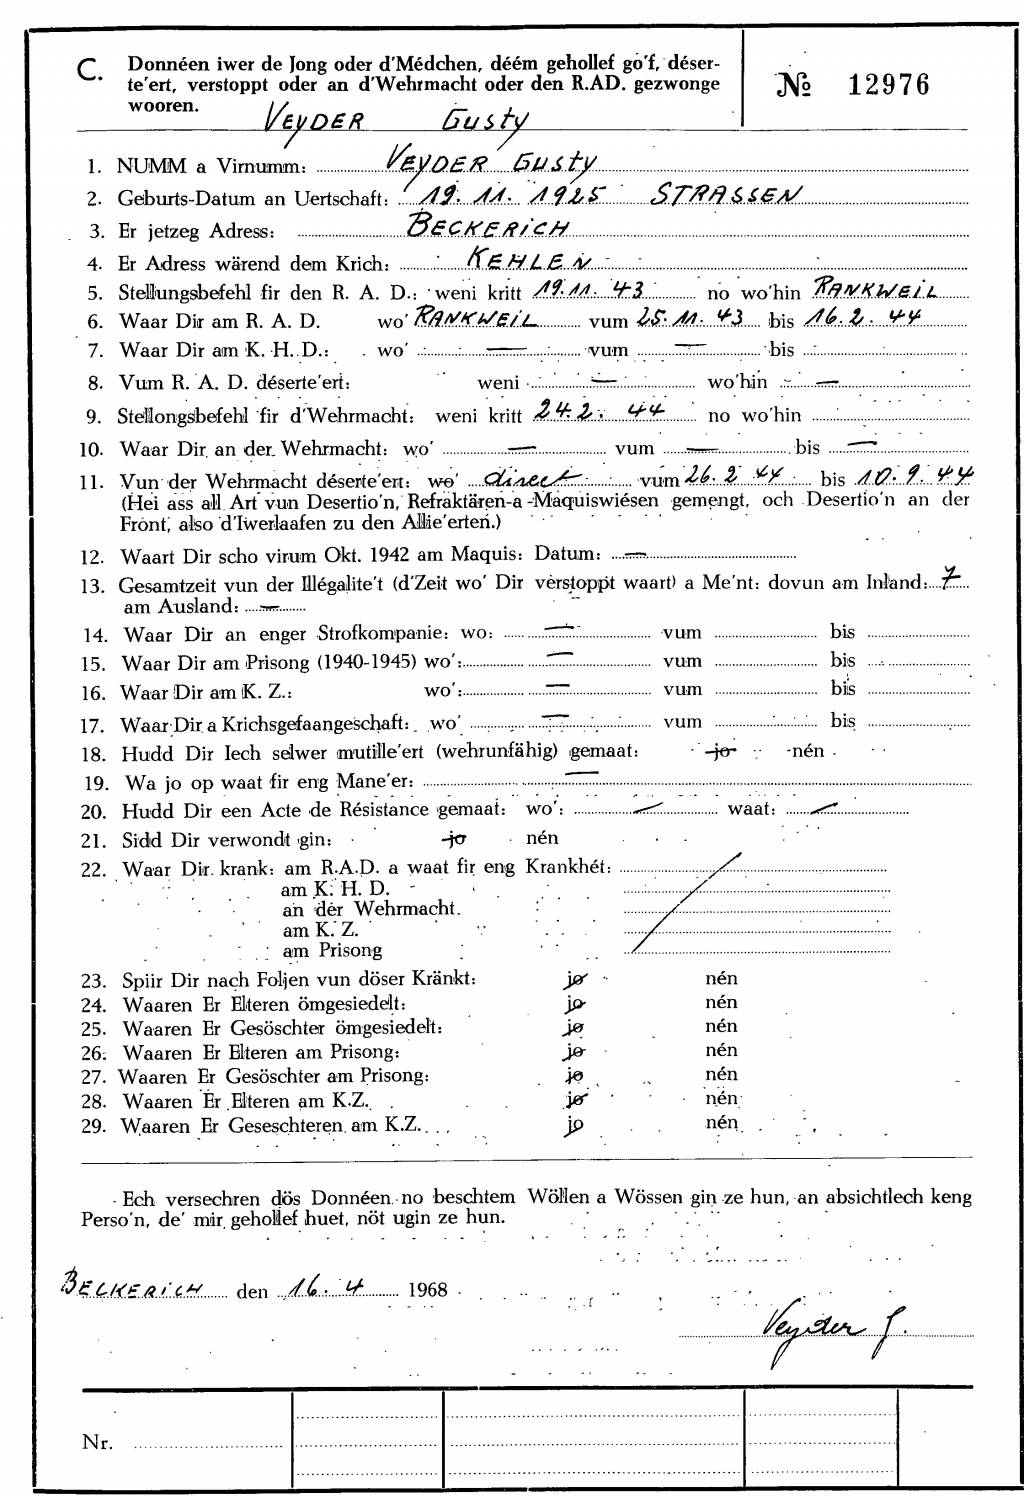 C. Donnéen iwer de Jong oder d'Médchen, déém gehollef gо'f, déser-
te'ert, verstoppt oder an d'Wehrmacht oder den R.AD. gezwonge
wooren.
№ 12976
VEYDER GUSTY
1. NUMM a Virnumm: VEYDER GUSTY
2. Geburts-Datum an Uertschaft: 19. 11. 1925 STRASSEN
3. Er jetzeg Adress: BECKERICH
4. Er Adress wärend dem Krich: KEHLEN
5. Stellungsbefehl fir den R. A. D.: weni kritt 19.11. 43 no wo'hin RANKWEIL
6. Waar Dir am R. A. D. wo' RANKWEIL vum 25. 11. 43 bis 16. 2. 44
7. Waar Dir am K. H. D.: wo' — vum — bis
8. Vum R. A. D. déserte'ert: weni — wo'hin —
9. Stellongsbefehl fir d'Wehrmacht: weni kritt 24.2. 44 no wo'hin
10. Waar Dir an der Wehrmacht: wo' — vum — bis —
11. Vun der Wehrmacht déserte'ert: wo' direct vum 26. 2 44 bis 10. 9. 44
(Hei ass all Art vun Desertio'n, Refraktären-a -Maquiswiésen gemengt, och Desertio'n an der
Front, also d'Iwerlaafen zu den Allie'erten.)
12. Waart Dir scho virum Okt. 1942 am Maquis: Datum: —
13. Gesamtzeit vun der Illégalite't (d'Zeit wo' Dir verstoppt waart) a Me'nt: dovun am Inland: 7
am Ausland: —
14. Waar Dir an enger Strofkompanie: wo: — vum bis
15. Waar Dir am Prisong (1940-1945) wo': — vum bis
16. Waar Dir am K. Z.: wo': — vum bis
17. Waar Dir a Krichsgefaangeschaft: wo' — vum bis
18. Hudd Dir Iech selwer mutille'ert (wehrunfähig) gemaat: jo nén
19. Wa jo op waat fir eng Mane'er: —
20. Hudd Dir een Acte de Résistance gemaat: wo': — waat: —
21. Sidd Dir verwondt gin: jo nén
22. Waar Dir krank: am R.A.D. a waat fir eng Krankhét:
am K. H. D.
an der Wehrmacht.
am K. Z.
am Prisong
23. Spiir Dir nach Foljen vun döser Kränkt: jo nén
24. Waaren Er Elteren ömgesiedelt: jo nén
25. Waaren Er Gesöschter ömgesiedelt: jo nén
26. Waaren Er Elteren am Prisong: jo nén
27. Waaren Er Gesöschter am Prisong: jo nén
28. Waaren Er Elteren am K.Z. jo nén
29. Waaren Er Geseschteren am K.Z. jo nén
Ech versechren dös Donnéen no beschtem Wöllen a Wössen gin ze hun, an absichtlech keng
Perso'n, de' mir gehollef huet, nöt ugin ze hun.
BECKERICH den 16. 4 1968
Veyder G.
Nr.